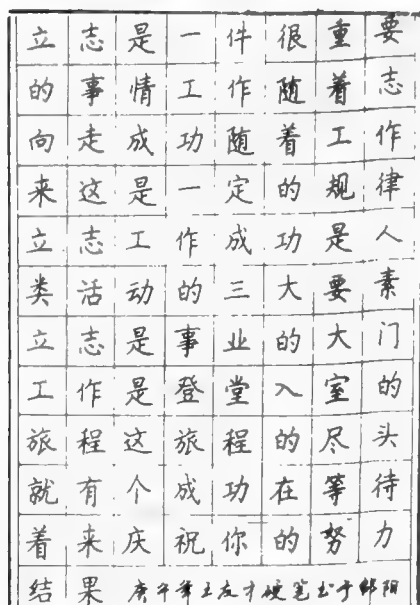 立志是一件很重要
的事情工作随着志
向走成功随着工作
来这是一定的规律
立志工作成功是人
类活动的三大要素
立志是事业的大门
工作是登堂入室的
旅程这旅程的尽头
就有个成功在等待
着来庆祝你的努力
结果 庚午年王友才硬笔书于绵阳